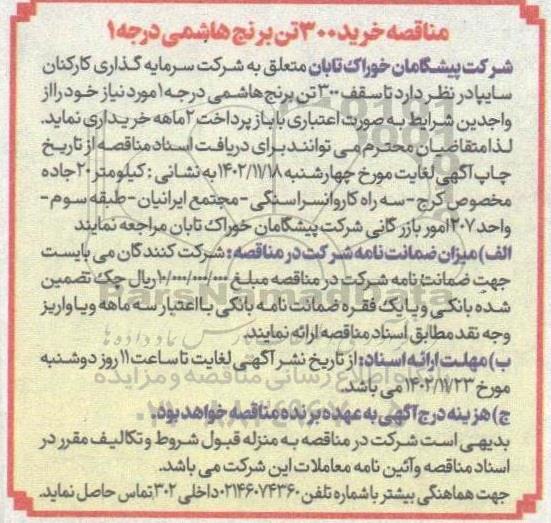 مناقصه خرید ۳۰۰ تن برنج هاشمی درجه ۱
شرکت پیشگامان خوراک تابان متعلق به شرکت سرمایه گذاری کارکنان
سایپا در نظر دارد تا سقف ۳۰۰ تن برنج هاشمی درجه ۱ مورد نیاز خود را از
واجدین شرایط به صورت اعتباری با باز پرداخت ۲ ماهه خریداری نماید.
لذا متقاضیان محترم می توانند برای دریافت اسناد مناقصه از تاریخ
چاپ آگهی لغایت مورخ چهارشنبه ۱۴۰۲/۱۱/۱۸ به نشانی : کیلومتر ۲۰ جاده
مخصوص کرج - سه راه کاروانسرا سنگی - مجتمع ایرانیان - طبقه سوم -
واحد ۱۲۰۷ امور بازرگانی شرکت پیشگامان خوراک تابان مراجعه نمایند
الف) میزان ضمانت نامه شرکت در مناقصه: شرکت کنندگان می بایست
جهت ضمانت نامه شرکت در مناقصه مبلغ ۱۰/۰۰۰/۰۰۰/۰۰۰ ریال چک تضمین
شده بانکی و یا یک فقره ضمانت نامه بانکی با اعتبار سه ماهه و یا واریز
وجه نقد مطابق اسناد مناقصه ارائه نمایند
ب) مهلت ارائه اسناد: از تاریخ نشر آگهی لغایت تا ساعت ۱۱ روز دوشنبه
مورخ ۱۴۰۲/۱۱/۲۳ می باشد.
ج) هزینه درج آگهی به عهده برنده مناقصه خواهد بود.
بدیهی است شرکت در مناقصه به منزله قبول شروط و تکالیف مقرر در
اسناد مناقصه و آئین نامه معاملات این شرکت می باشد.
جهت هماهنگی بیشتر با شماره تلفن ۰۲۱۴۶۰۷۴۳۶۰ داخلی ۳۰۲ تماس حاصل نماید.
ParsNamadData